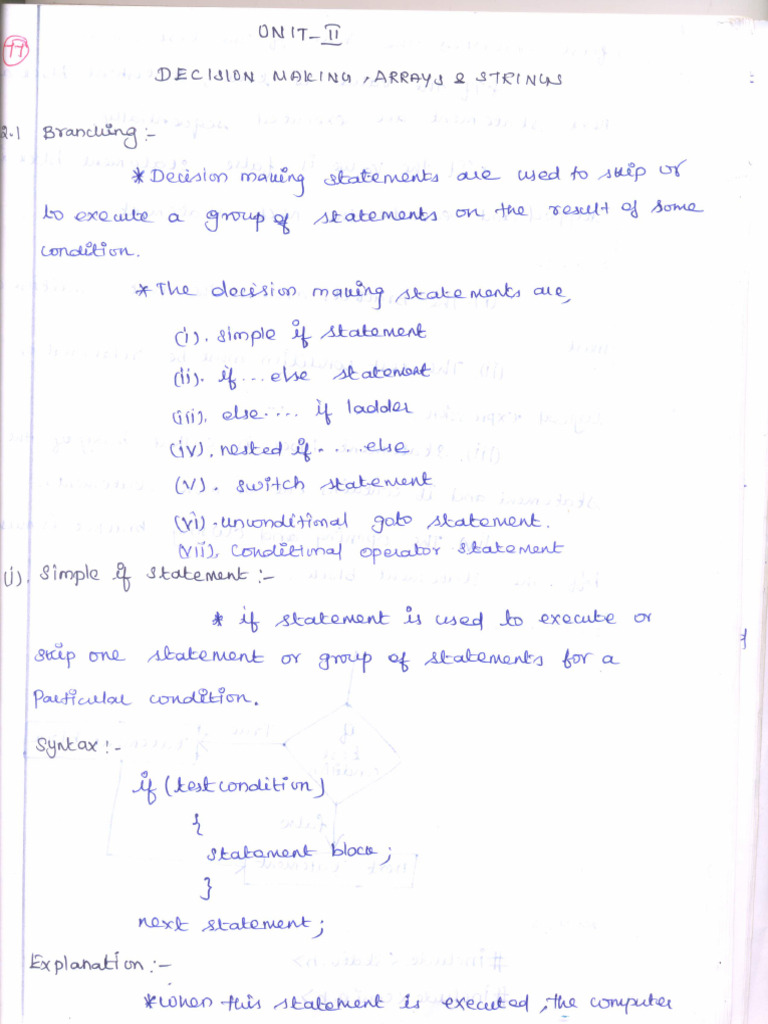 77
UNIT-II
DECISION MAKING, ARRAYS & STRINGS
2.1 Branching:-
* Decision making statements are used to skip or
to execute a group of statements on the result of some
condition.
* The decision making statements are,
(i). simple if statement
(ii). if...else statement
(iii). else.... if ladder
(iv). nested if.....else
(v). switch statement
(vi). unconditional goto statement.
(vii). conditional operator statement
(i). Simple if statement:-
* if statement is used to execute or
skip one statement or group of statements for a
particular condition.
Syntax:-
if (testcondition)
{
statement block;
}
next statement;
Explanation:-
* when this statement is executed, the computer